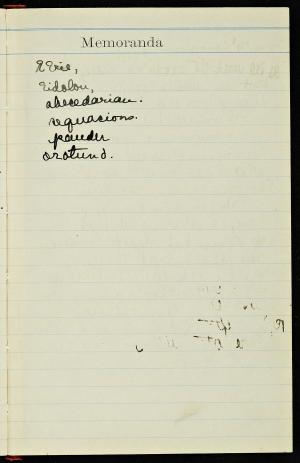 Memoranda
Eidolon,
abecedarian.
sequacious.
pander
orotund.